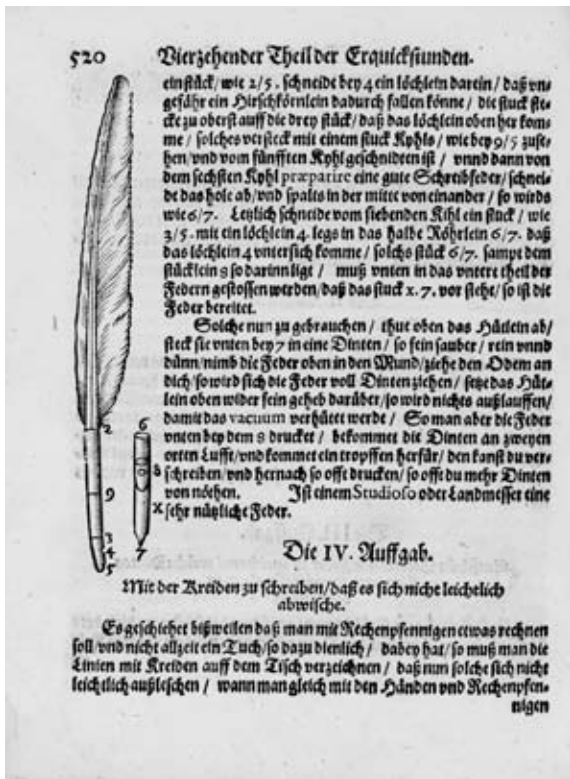 520 Vierzehender Theil der Erquickstunden.
ein stück/ wie 2/5. schneide bey 4 ein löchlein darein/ daß vn-
gefähr ein Hirschkörnlein dadurch fallen könne/ die stuck ste-
cke zu oberst auff die drey stück/ daß das löchlein oben her kom-
me/ solches versteck mit einem stuck Kyhls/ wie bey 9/5 zuse-
hen/ vnd vom fünfften Kyhl geschnidten ist/ vnnd dann von
dem sechsten Kyhl præparire eine gute Schreibfeder/ schnei-
de das hole ab/ vnd spalts in der mitte von einander/ so wirds
wie 6/7. Letzlich schneide vom siebenden Kihl ein stuck/ wie
3/5. mit ein löchlein 4. legs in das halbe Röhrlein 6/7. daß
das löchlein 4 vntersich komme/ solchs stück 6/7. sampt dem
stücklein 8 so darinn ligt/ muß vnten in das vntere theil der
Federn gestossen werden/ daß das stuck x. 7. vor steht/ so ist die
Feder bereitet.
Solche nun zu gebrauchen/ thut oben das Hütlein ab/
steck sie vnten bey 7 in eine Dinten/ so fein sauber/ rein vnnd
dünn/ nimb die Feder oben in den Mund/ ziehe den Odem an
dich/ so wird sich die Feder voll Dinten ziehen/ setze das Hüt-
lein oben wider fein geheb darüber/ so wird nichts außlauffen/
damit das vacuum verhütet werde/ So man aber die Feder
vnten bey dem 8 drucket/ bekommet die Dinten an zweyen
orten Lufft/ vnd kommet ein tropffen herfür/ den kanst du ver-
schreiben/ vnd hernach so offt drucken/ so offt du mehr Dinten
von nöthen. Ist einem Studioso oder Landmesser eine
sehr nützliche Feder.
2
9
3
4
5
6
8
X
7
Die IV. Auffgab.
Mit der Kreiden zu schreiben/ daß es sich nicht leichtlich
abwische.
Es geschiehet bißweilen daß man mit Rechenpfennigen etwas rechnen
soll/ vnd nicht allzeit ein Tuch/ so dazu dienlich/ dabey hat/ so muß man die
Linien mit Kreiden auff dem Tisch verzeichnen/ daß nun solche sich nicht
leichtlich außleschen/ wann man gleich mit den Händen vnd Rechenpfen-
nigen